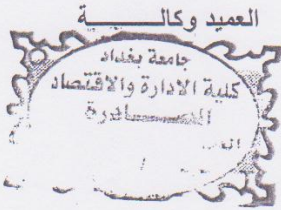 العميد وكالـــــــة
جامعة بغداد
كلية الادارة والاقتصاد
الصـــــادرة